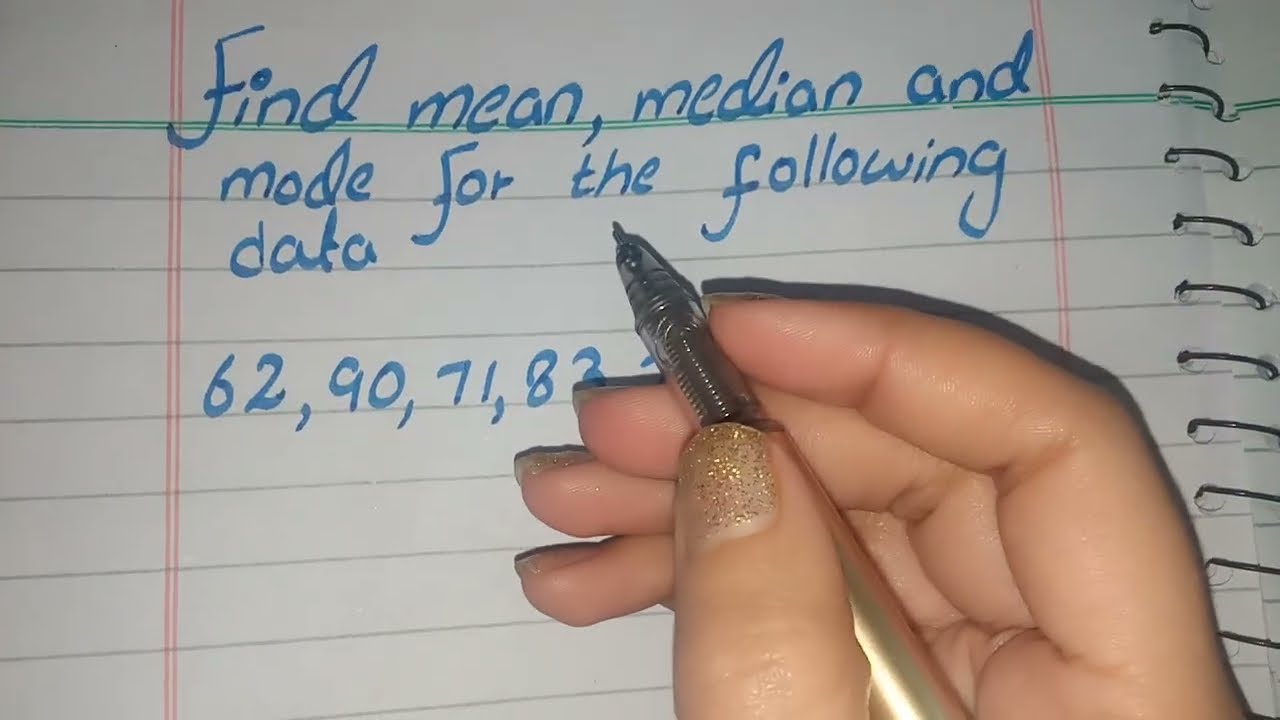 Find mean, median and
mode for the following
data
62, 90, 71, 83,